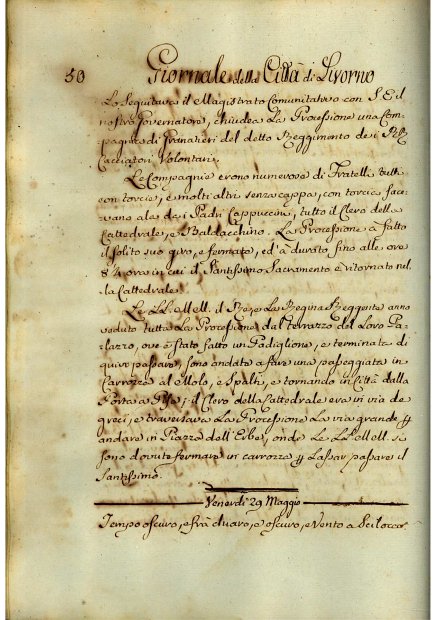 50 Giornale della Città di Livorno
Lo Seguitava il Magistrato Comunitativo con S. E. il
nostro Governatore, chiudea La Processione una Com-
pagnia di Granatieri del detto Reggimento dei RR.
Cacciatori Volontari.
Le Compagnie erono numerose di Fratelli tutti
con torcie, e molti altri senza cappa, con torcie face-
vano ala dai Padri Cappuccini, tutto il Clero della
Cattedrale, e Baldacchino. La Processione à fatto
il solito suo giro, e fermate, ed'à durato fino alle ore
8¼ ora in cui il Santissimo Sacramento è ritornato nel-
la Cattedrale.
Le LL. MM. il Re, e La Regina Reggente anno
veduto tutta La Processione dal terrazzo del Loro Pa-
lazzo, ove è stato fatto un Padiglione, e terminata di
quivi passare, sono andate a fare una passeggiata in
Carrozza al Molo, e Spalti, e tornando in Città dalla
Porta a Pisa, il Clero della Cattedrale era in via de
greci, e traversava La Processione La via grande p
andare in Piazza dell'Erbe, onde Le LL. MM. si
sono dovute fermare in carrozza p Lassar passare il
Santissimo.
Venerdi 29 Maggio
Tempo oscuro, e frà chiaro, e oscuro, e Vento a Scilocco